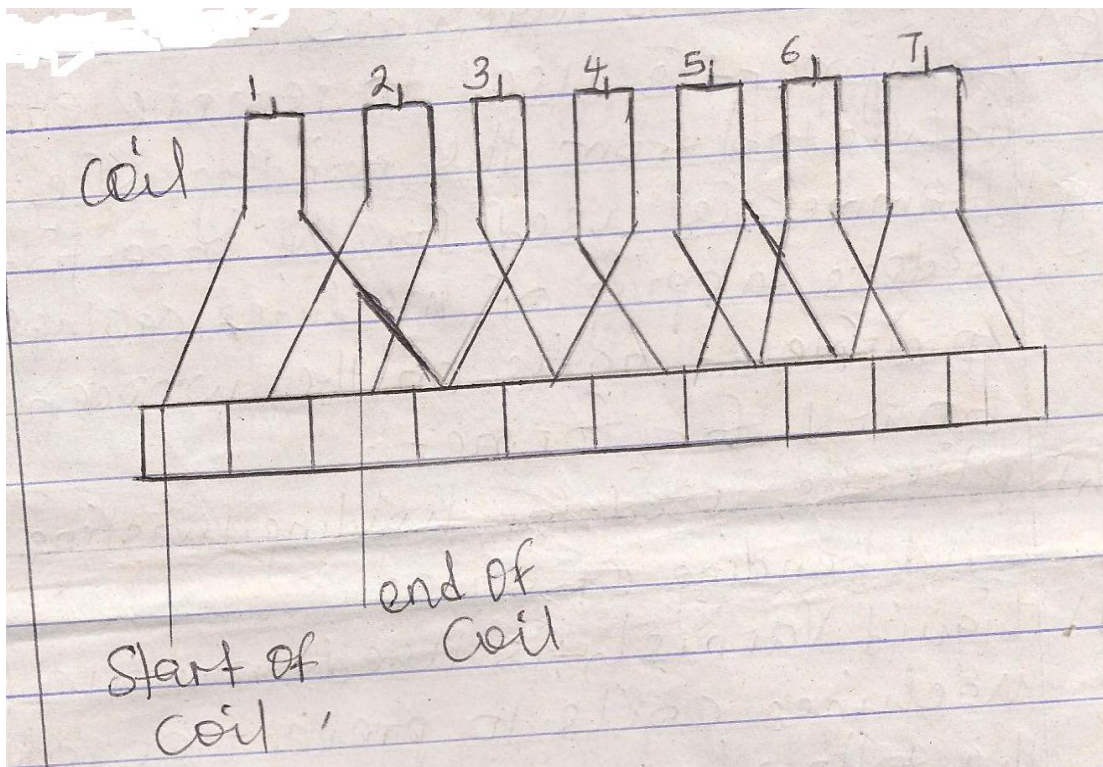 1 2 3 4 5 6 7
Coil
end of
Coil
Start of
Coil